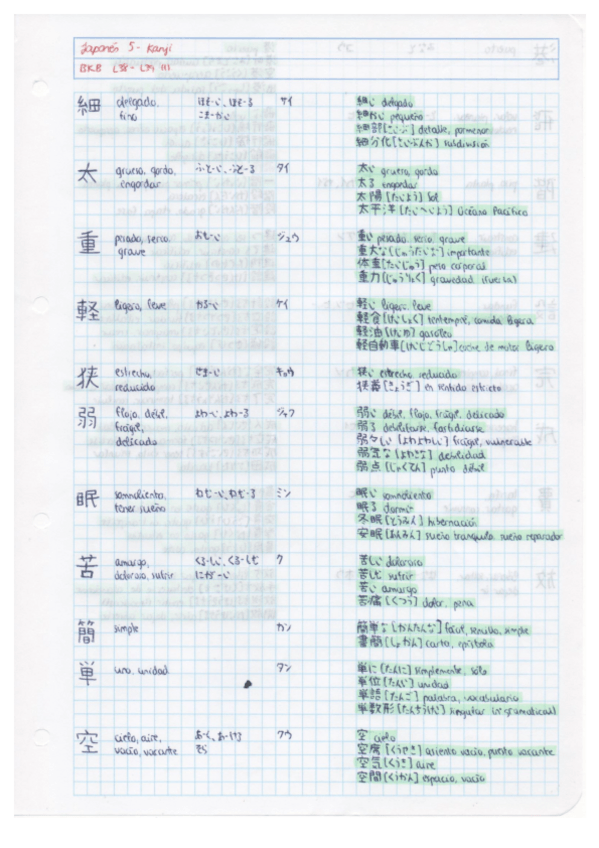 Japonés 5 - Kanji
BKB L38 - L39 III
細 delgado, ほそ-い、ほそ-る サイ 細い delgado
fino こま-かい 細かい pequeño
細部 [さいぶ] detalle, pormenor
細分化 [さいぶんか] subdivisión
太 grueso, gordo, ふと-い、ふと-る タイ 太い grueso, gordo
engordar 太る engordar
太陽 [たいよう] Sol
太平洋 [たいへいよう] Océano Pacífico
重 pesado, serio, おも-い ジュウ 重い pesado, serio, grave
grave 重大な [じゅうだいな] importante
体重 [たいじゅう] peso corporal
重力 [じゅうりょく] gravedad (fuerza)
軽 ligero, leve かる-い ケイ 軽い ligero, leve
軽食 [けいしょく] tentempié, comida ligera
軽油 [けいゆ] gasóleo
軽自動車 [けいじどうしゃ] coche de motor ligero
狭 estrecho, せま-い キョウ 狭い estrecho, reducido
reducido 狭義 [きょうぎ] en sentido estricto
弱 flojo, débil, よわ-い、よわ-る ジャク 弱い débil, flojo, frágil, delicado
frágil, 弱る debilitarse, fastidiarse
delicado 弱々しい [よわよわしい] frágil, vulnerable
弱 な debilidad
弱点 [じゃくてん] punto débil
眠 somnoliento, ねむ-い、ねむ-る ミン 眠い somnoliento
tener sueño 眠る dormir
冬眠 [とうみん] hibernación
安眠 [あんみん] sueño tranquilo, sueño reparador
苦 amargo, くる-しい、くる-しむ ク 苦しい doloroso
doloroso, sufrir にが-い 苦しむ sufrir
苦い amargo
苦痛 [くつう] dolor, pena
簡 simple カン 簡単な [かんたんな] fácil, sencillo, simple
書簡 [しょかん] carta, epístola
単 uno, unidad タン 単に [たんに] simplemente, sólo
単位 [たんい] unidad
単語 [たんご] palabra, vocabulario
単数形 [たんすうけい] singular (gramatical)
空 cielo, aire, あ-く、あ-ける クウ 空 cielo
vacío, vacante そら 空席 [くうせき] asiento vacío, puesto vacante
空気 [くうき] aire
空間 [くうかん] espacio, vacío